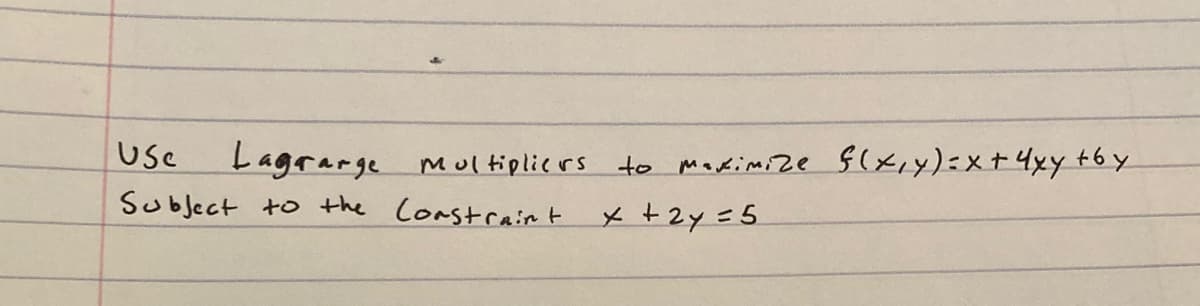 Use Lagrange multipliers to maximize f(x,y)=x+4xy+6y
Subject to the Constraint x+2y=5